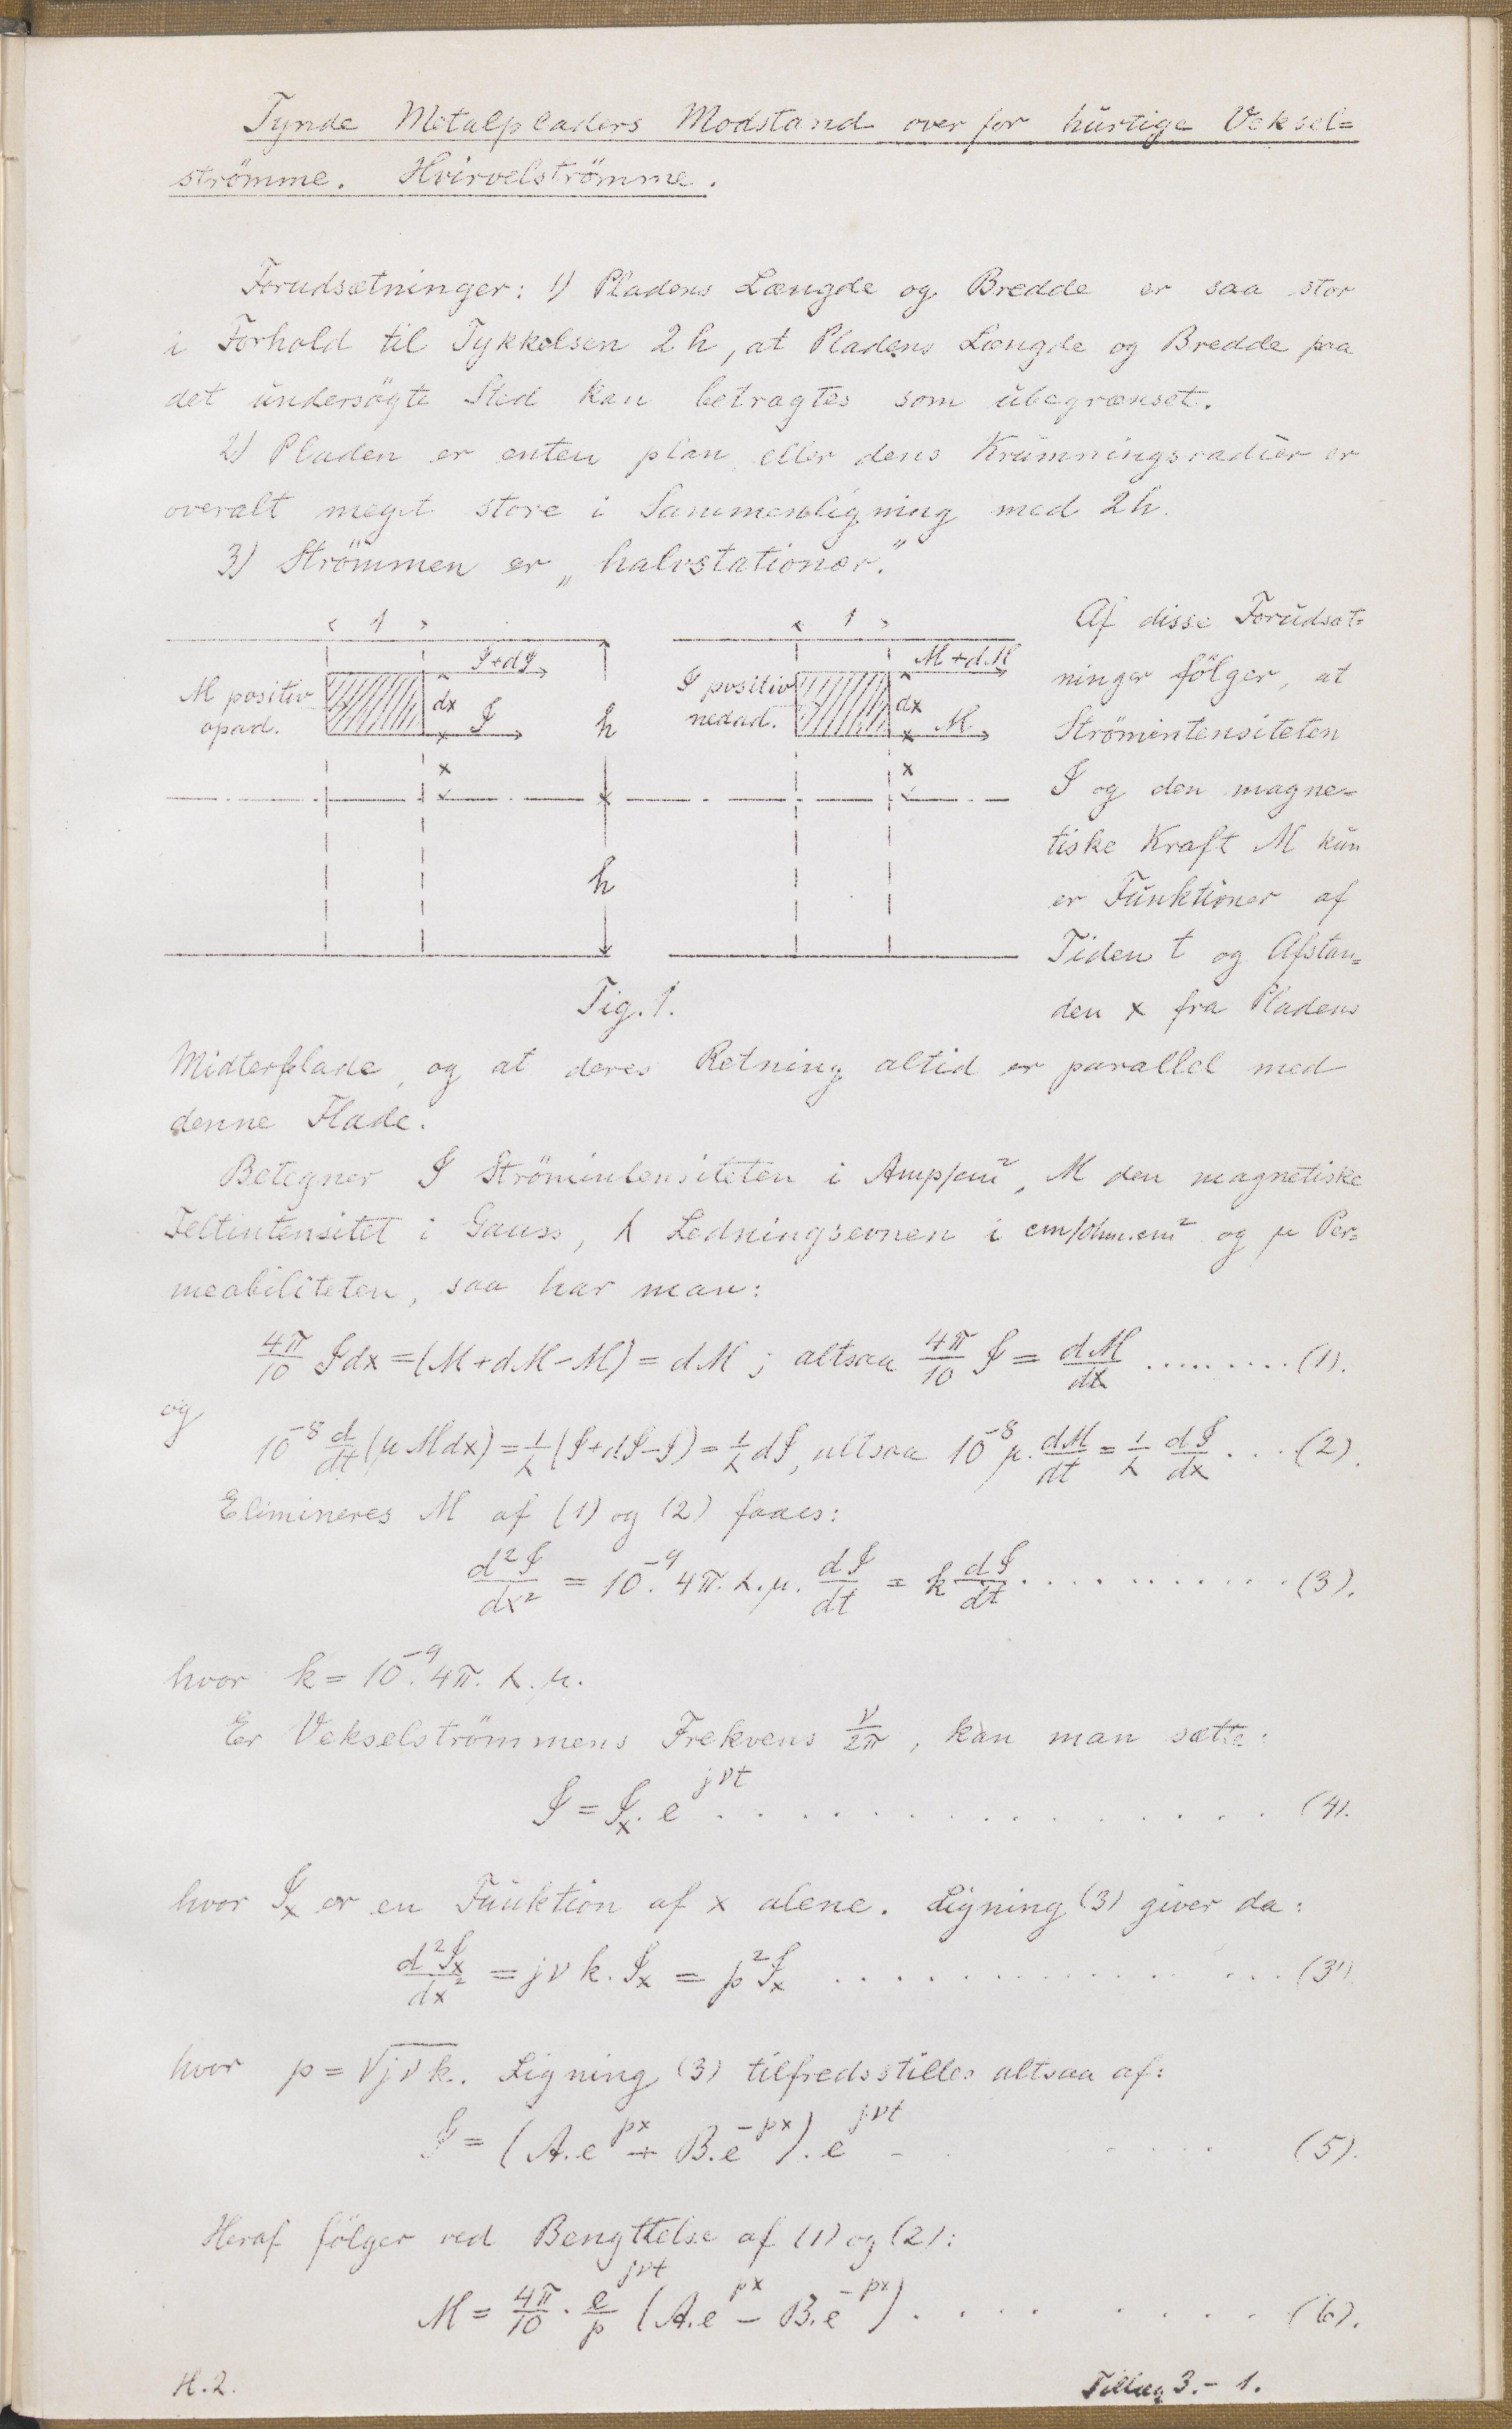 Tynde Metalpladers Modstand over for hurtige Veksel=
strömme. Hvirvelströmme.
Forudsætninger: 1) Pladens Længde og Bredde er saa stor
i Forhold til Tykkelsen 2h, at Pladens Længde og Bredde paa
det undersögte Sted kan betragtes som ubegrænset.
2) Pladen er enten plan eller dens Krumningsradier er
overalt meget store i Sammenligning med 2h.
3) Strömmen er „halvstationær."
1
J+dJ
M positiv
opad.
dx
J
h
x
h
1
M+dM
J positiv
nedad.
dx
M
x
Fig. 1.
Af disse Forudsæt=
ninger fölger, at
Strömintensiteten
J og den magne=
tiske Kraft M kun
er Funktioner af
Tiden t og Afstan=
den x fra Pladens
Midterflade, og at deres Retning altid er parallel med
denne Flade.
Betegner J Strömintensiteten i Amp/cm², M den magnetiske
Feltintensitet i Gauss, λ Ledningsevnen i cm/ohm.cm² og μ Per=
meabiliteten, saa har man:
4π/10 J dx = (M+dM-M) = dM ; altsaa 4π/10 J = dM/dx ......... (1).
og
10⁻⁸ d/dt (μMdx) = 1/λ (J+dJ-J) = 1/λ dJ, altsaa 10⁻⁸ μ. dM/dt = 1/λ dJ/dx . . . (2).
Elimineres M af (1) og (2) faaes:
d²J/dx² = 10⁻⁹. 4π. λ. μ. dJ/dt = k dJ/dt . . . . . . . . . . . (3).
hvor k = 10⁻⁹. 4π. λ. μ.
Er Vekselströmmens Frekvens ν/2π, kan man sætte:
J = Jₓ. e^jνt . . . . . . . . . . . . . . . . (4).
hvor Jₓ er en Funktion af x alene. Ligning (3) giver da:
d²Jₓ/dx² = jνk. Jₓ = p²Jₓ . . . . . . . . . . . . . . (3').
hvor p = √jνk. Ligning (3) tilfredsstilles altsaa af:
J = (A.e^px + B.e^-px). e^jνt - . . . . . (5).
Heraf fölger ved Benyttelse af (1) og (2):
M = 4π/10 . e^jνt/p (A.e^px - B.e^-px) . . . . . . . . . (6).
H.2.
Tillæg 3.- 1.